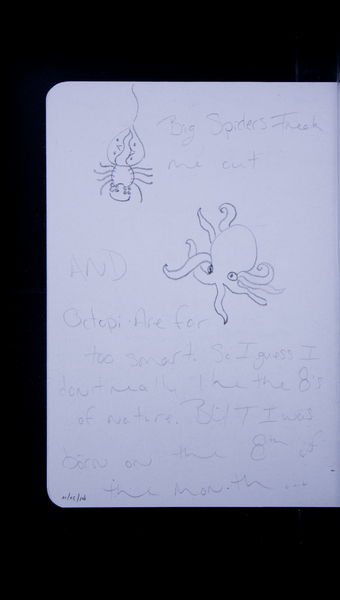 Big Spiders Freak
me out
AND
Octopi Are far
too smart. So I guess I
don't really like the 8's
of nature. BUT I was
born on the 8th of
the month ...